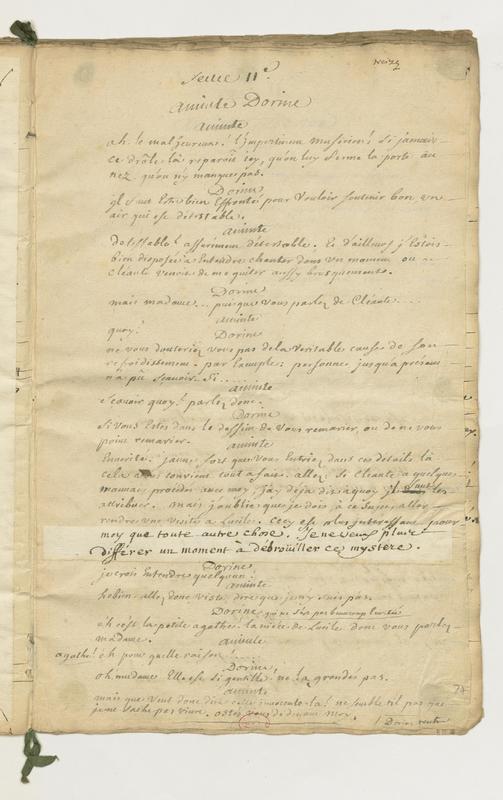 Scene 11e
aminte Dorine
aminte
ah le malheureux! l'impertinent musicien! si jamais
ce drôle là reparoît icy, qu'on luy ferme la porte au
nez. qu'on n'y manque pas.
Dorine
il faut Estre bien Effronté pour Vouloir soutenir bon un
air qui est détestable.
aminte
detestable! assurément détestable. Et d'ailleurs j'étois
bien disposée à Entendre chanter dans un moment ou
Cléante venoit de me quiter aussy brusquement.
Dorine
mais madame... puisque vous parlez de Cléante....
aminte
quoy?
Dorine
ne vous douteriez vous pas de la veritable cause de son
refroidissement. par Exemple: personne jusqu'a présent
n'a pû scavoir si....
aminte
scavoir quoy? parlez donc.
Dorine
si vous Estes dans le dessein de vous remarier, ou de ne vous
point remarier.
aminte
Enverité. j'aime fort que vous Entriez dans ces détails là
cela vous convient tout a fait. allez. si Cléante a quelques
mauvais procédés avec moy, j'ay déja dis a quoy il faut les
attribuer. mais j'oublie que je dois à ce sujet aller
rendre une visite a Lucile. Cecy est plus interessant pour
moy que toute autre chose. Je ne veux plus
différer un moment à débrouiller ce mystere.
Dorine
je crois Entendre quelqu'un.
aminte
hebien. allez donc viste dire que je n'y suis pas.
Dorine
ah c'est la petite agathe. la niéce de Lucile. donc vous parlez
madame.
aminte
agathe! eh pour quelle raison!
Dorine
oh madame Elle est si gentille. ne la grondés pas.
aminte
mais que veut donc dire cette innocente là! ne semble t'il pas que
je me cache pas vivre. ostez vous de devant moy.
Dorine sort
74